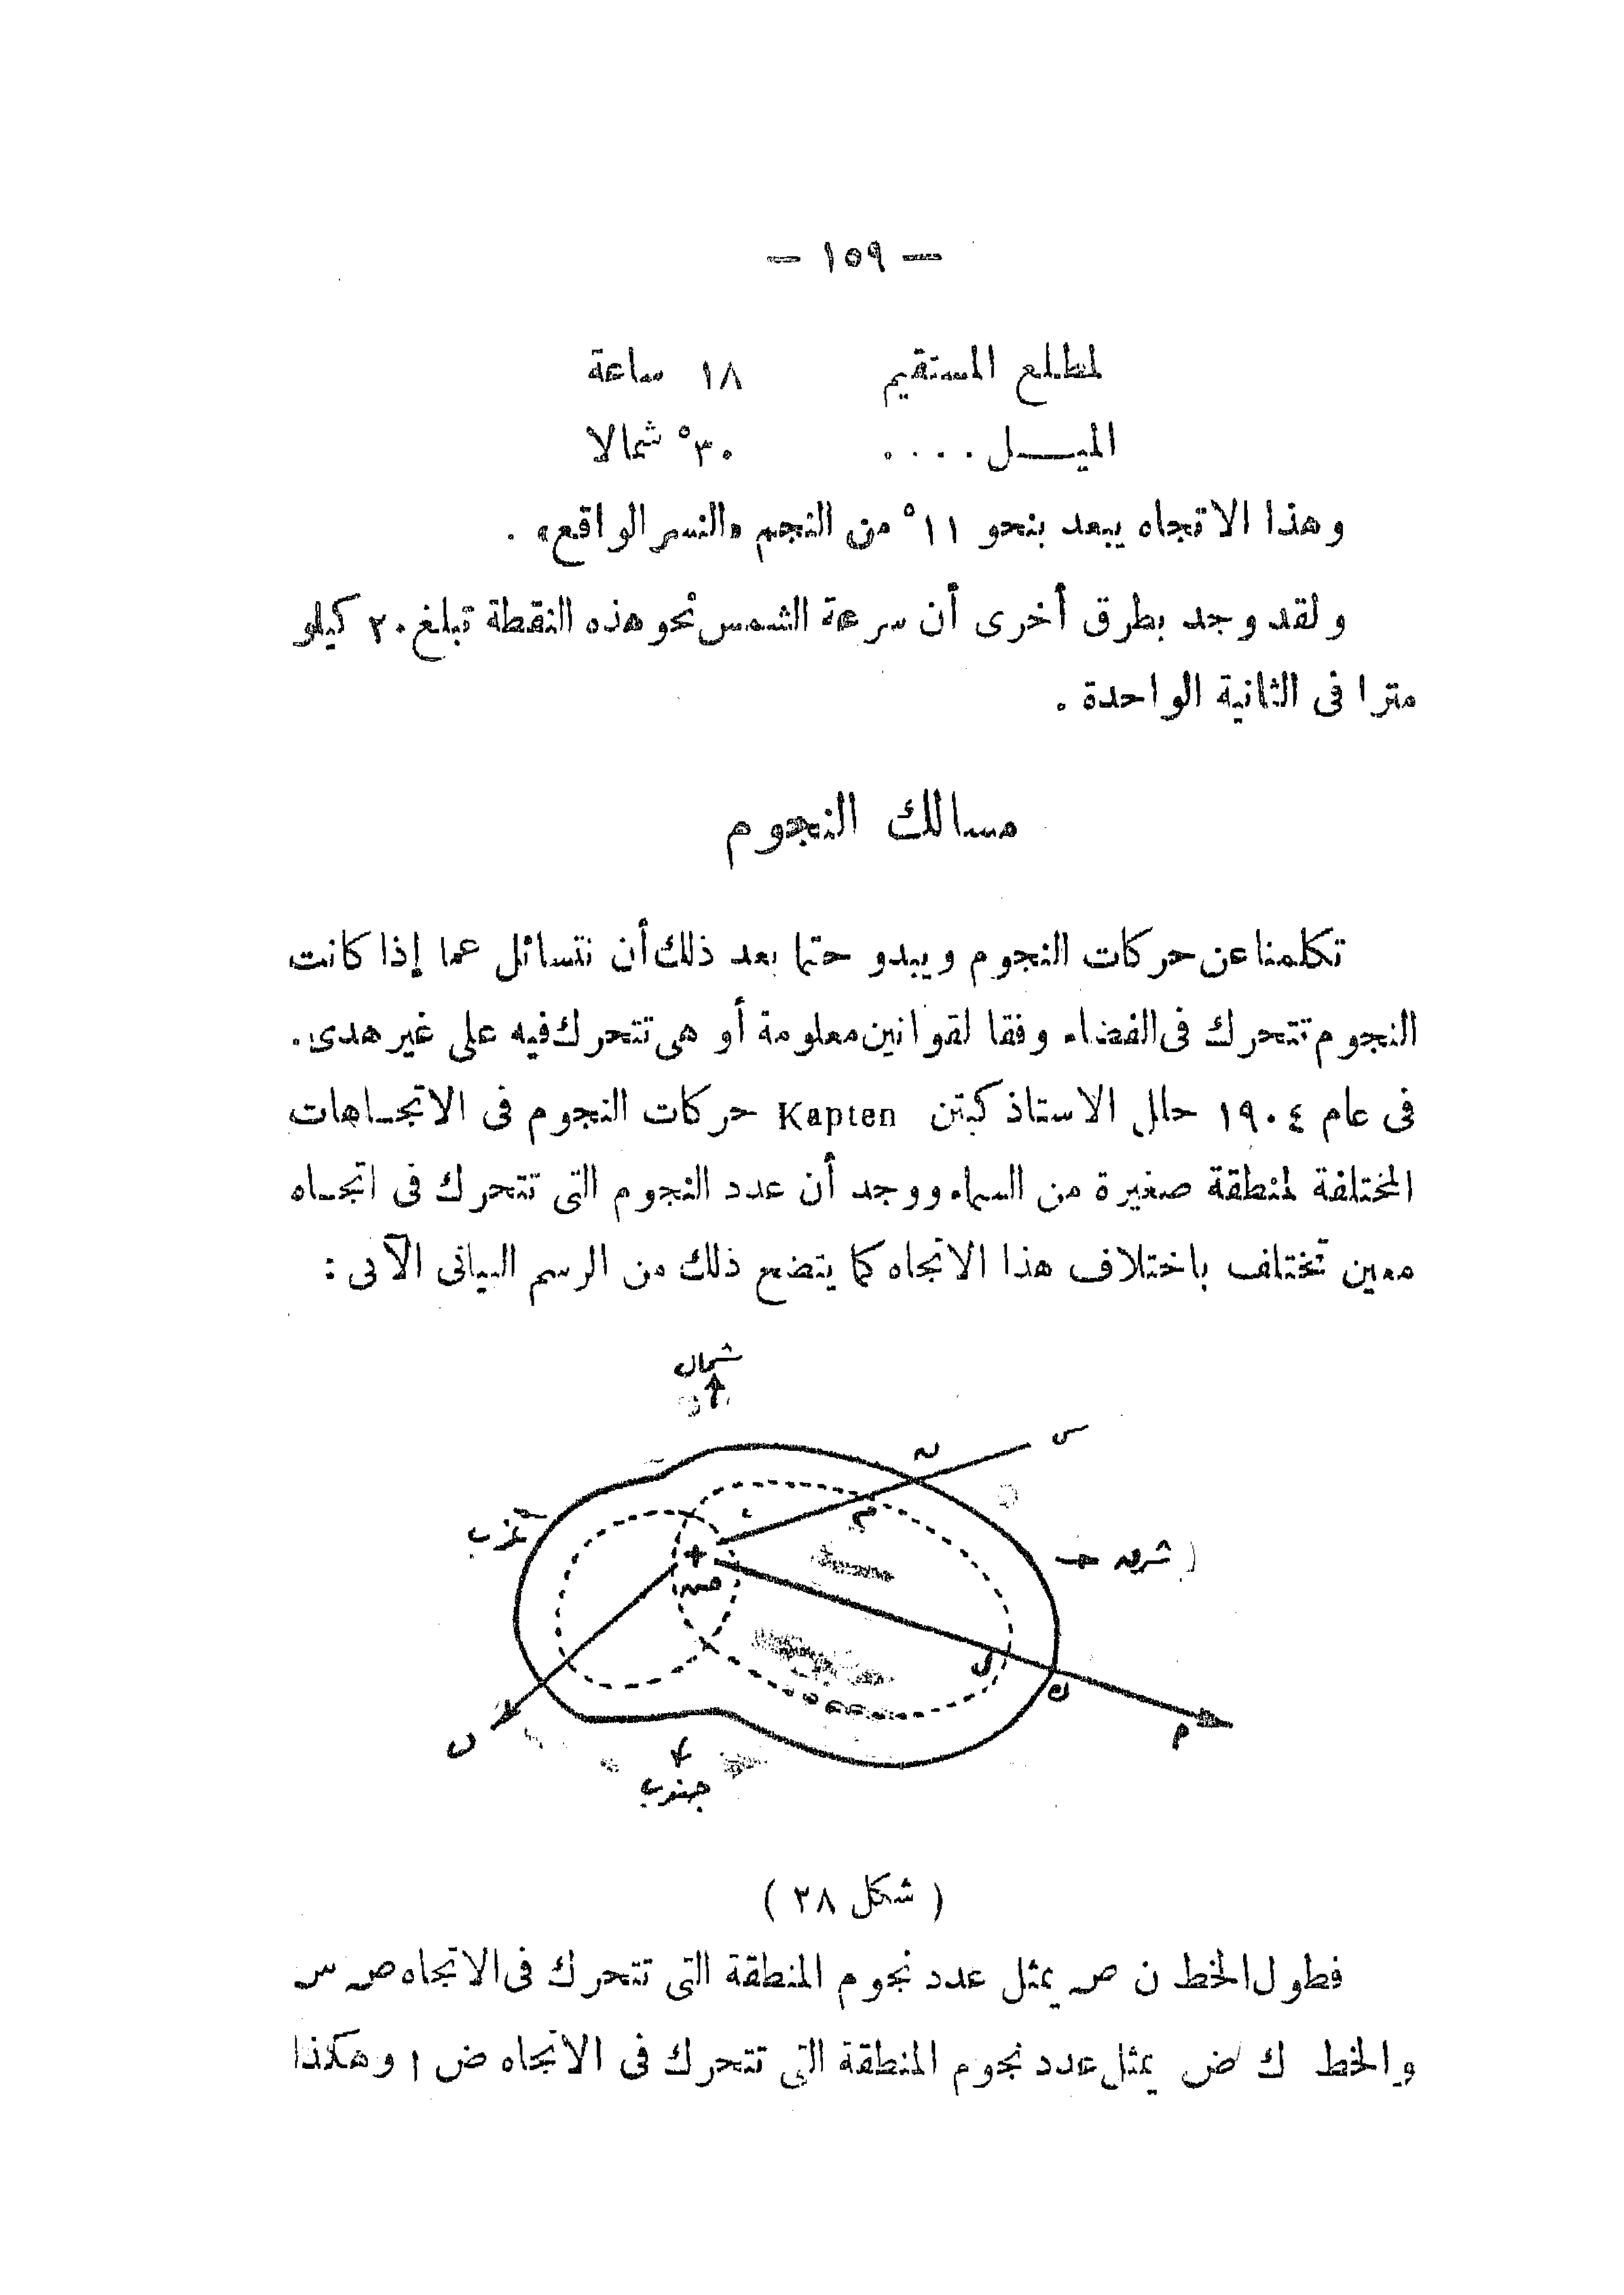 — ١٥٩ —
لمطلع المستقيم ١٨ ساعة
الميـــل .... ٣٠° شمالا
وهذا الاتجاه يبعد بنحو ١١° من النجم «النسر الواقع» .
ولقد وجد بطرق أخرى أن سرعة الشمس نحو هذه النقطة تبلغ ٢٠ كيلو
مترا فى الثانية الواحدة .
مسالك النجوم
تكلمنا عن حركات النجوم ويبدو حتما بعد ذلك أن نتسائل عما إذا كانت
النجوم تتحرك فى الفضاء وفقا لقوانين معلومة أو هى تتحرك فيه على غير هدى .
فى عام ١٩٠٤ حلل الاستاذ كبتن Kapten حركات النجوم فى الاتجـاهات
المختلفة لمنطقة صغيرة من السماء ووجد أن عدد النجوم التى تتحرك فى اتجـاه
معين تختلف باختلاف هذا الاتجاه كما يتضح ذلك من الرسم البيانى الآتى :
شمال
س
ن
غرب
م
شرق
ص
ل
ك
م
ب
جنوب
( شكل ٢٨ )
فطول الخط ن ص يمثل عدد نجوم المنطقة التى تتحرك فى الاتجاه ص س
والخط ك ض يمثل عدد نجوم المنطقة التى تتحرك فى الاتجاه ض ا وهكذا